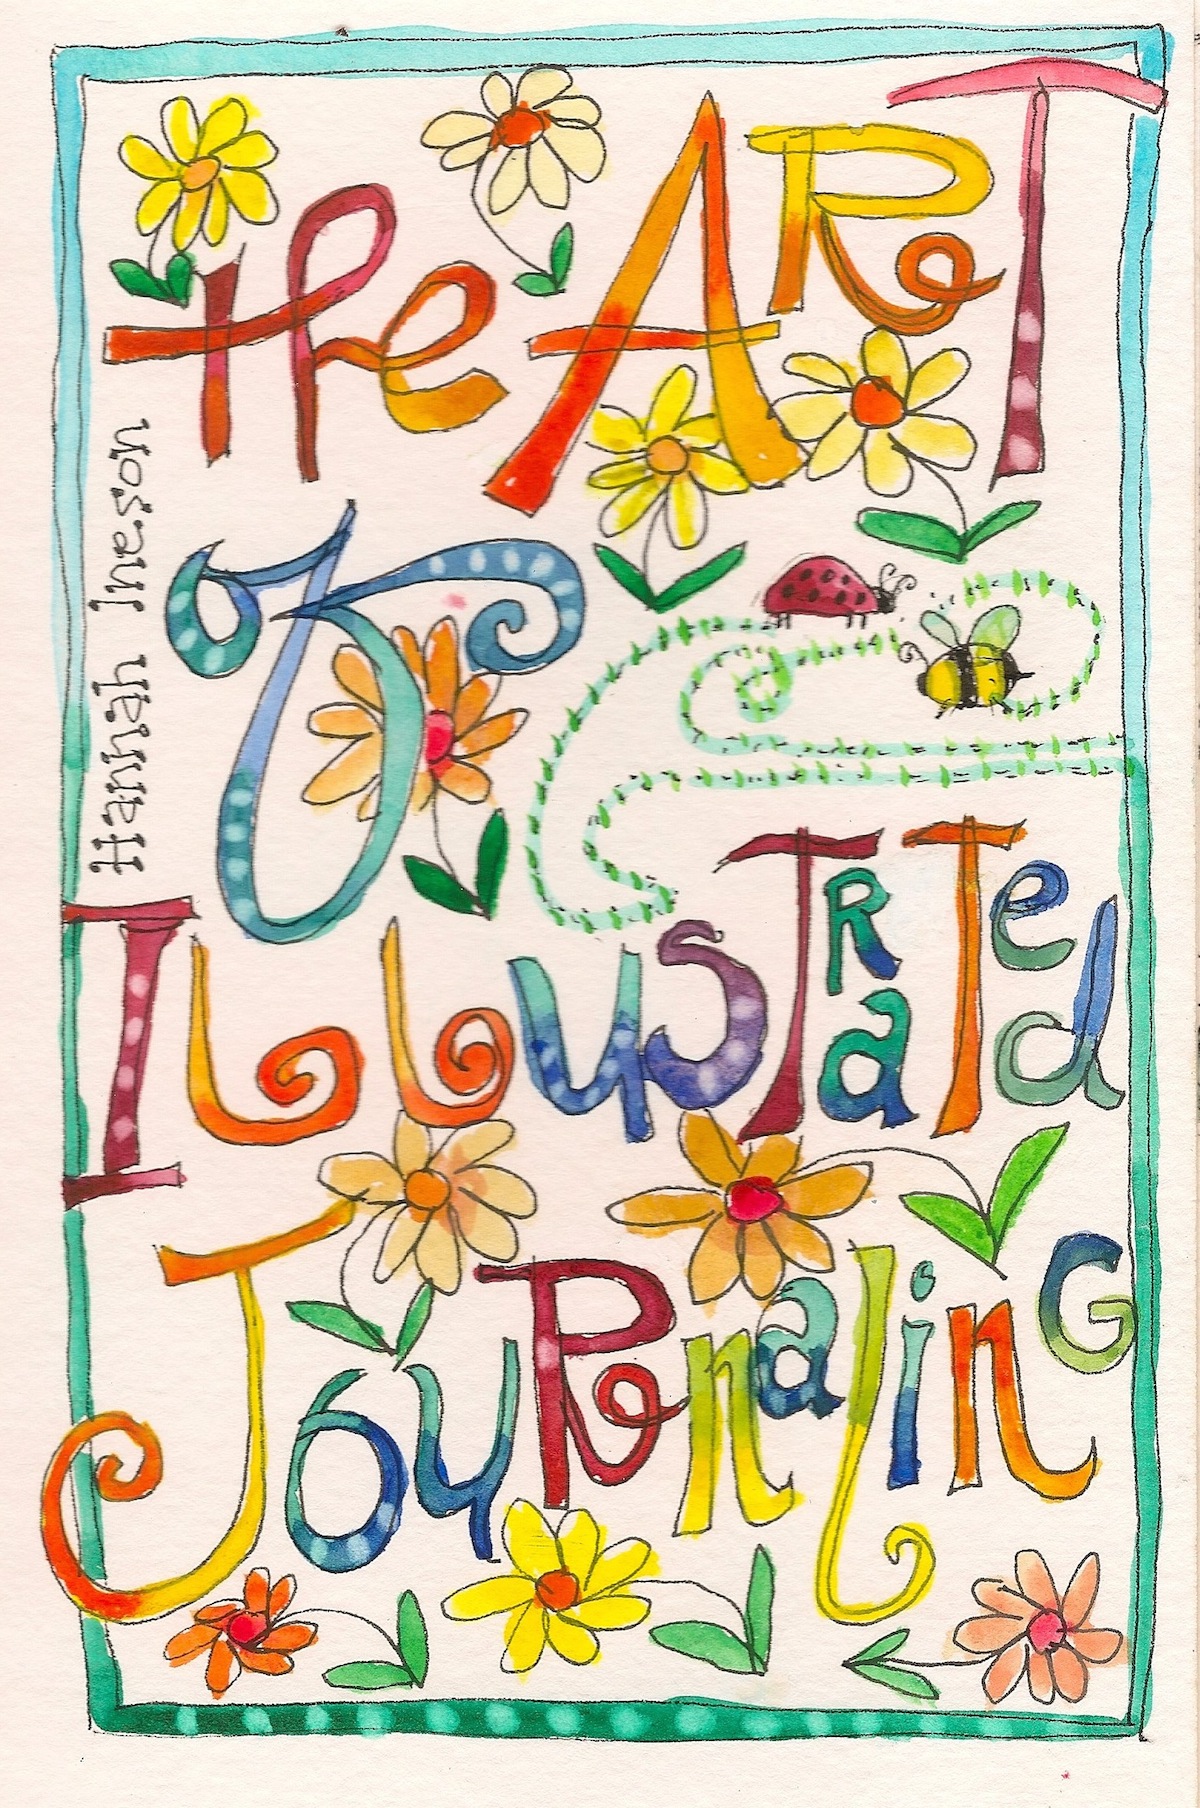 the ART
Of
ILLUSTRATEd
JOURnalinG
Hannah Ineson